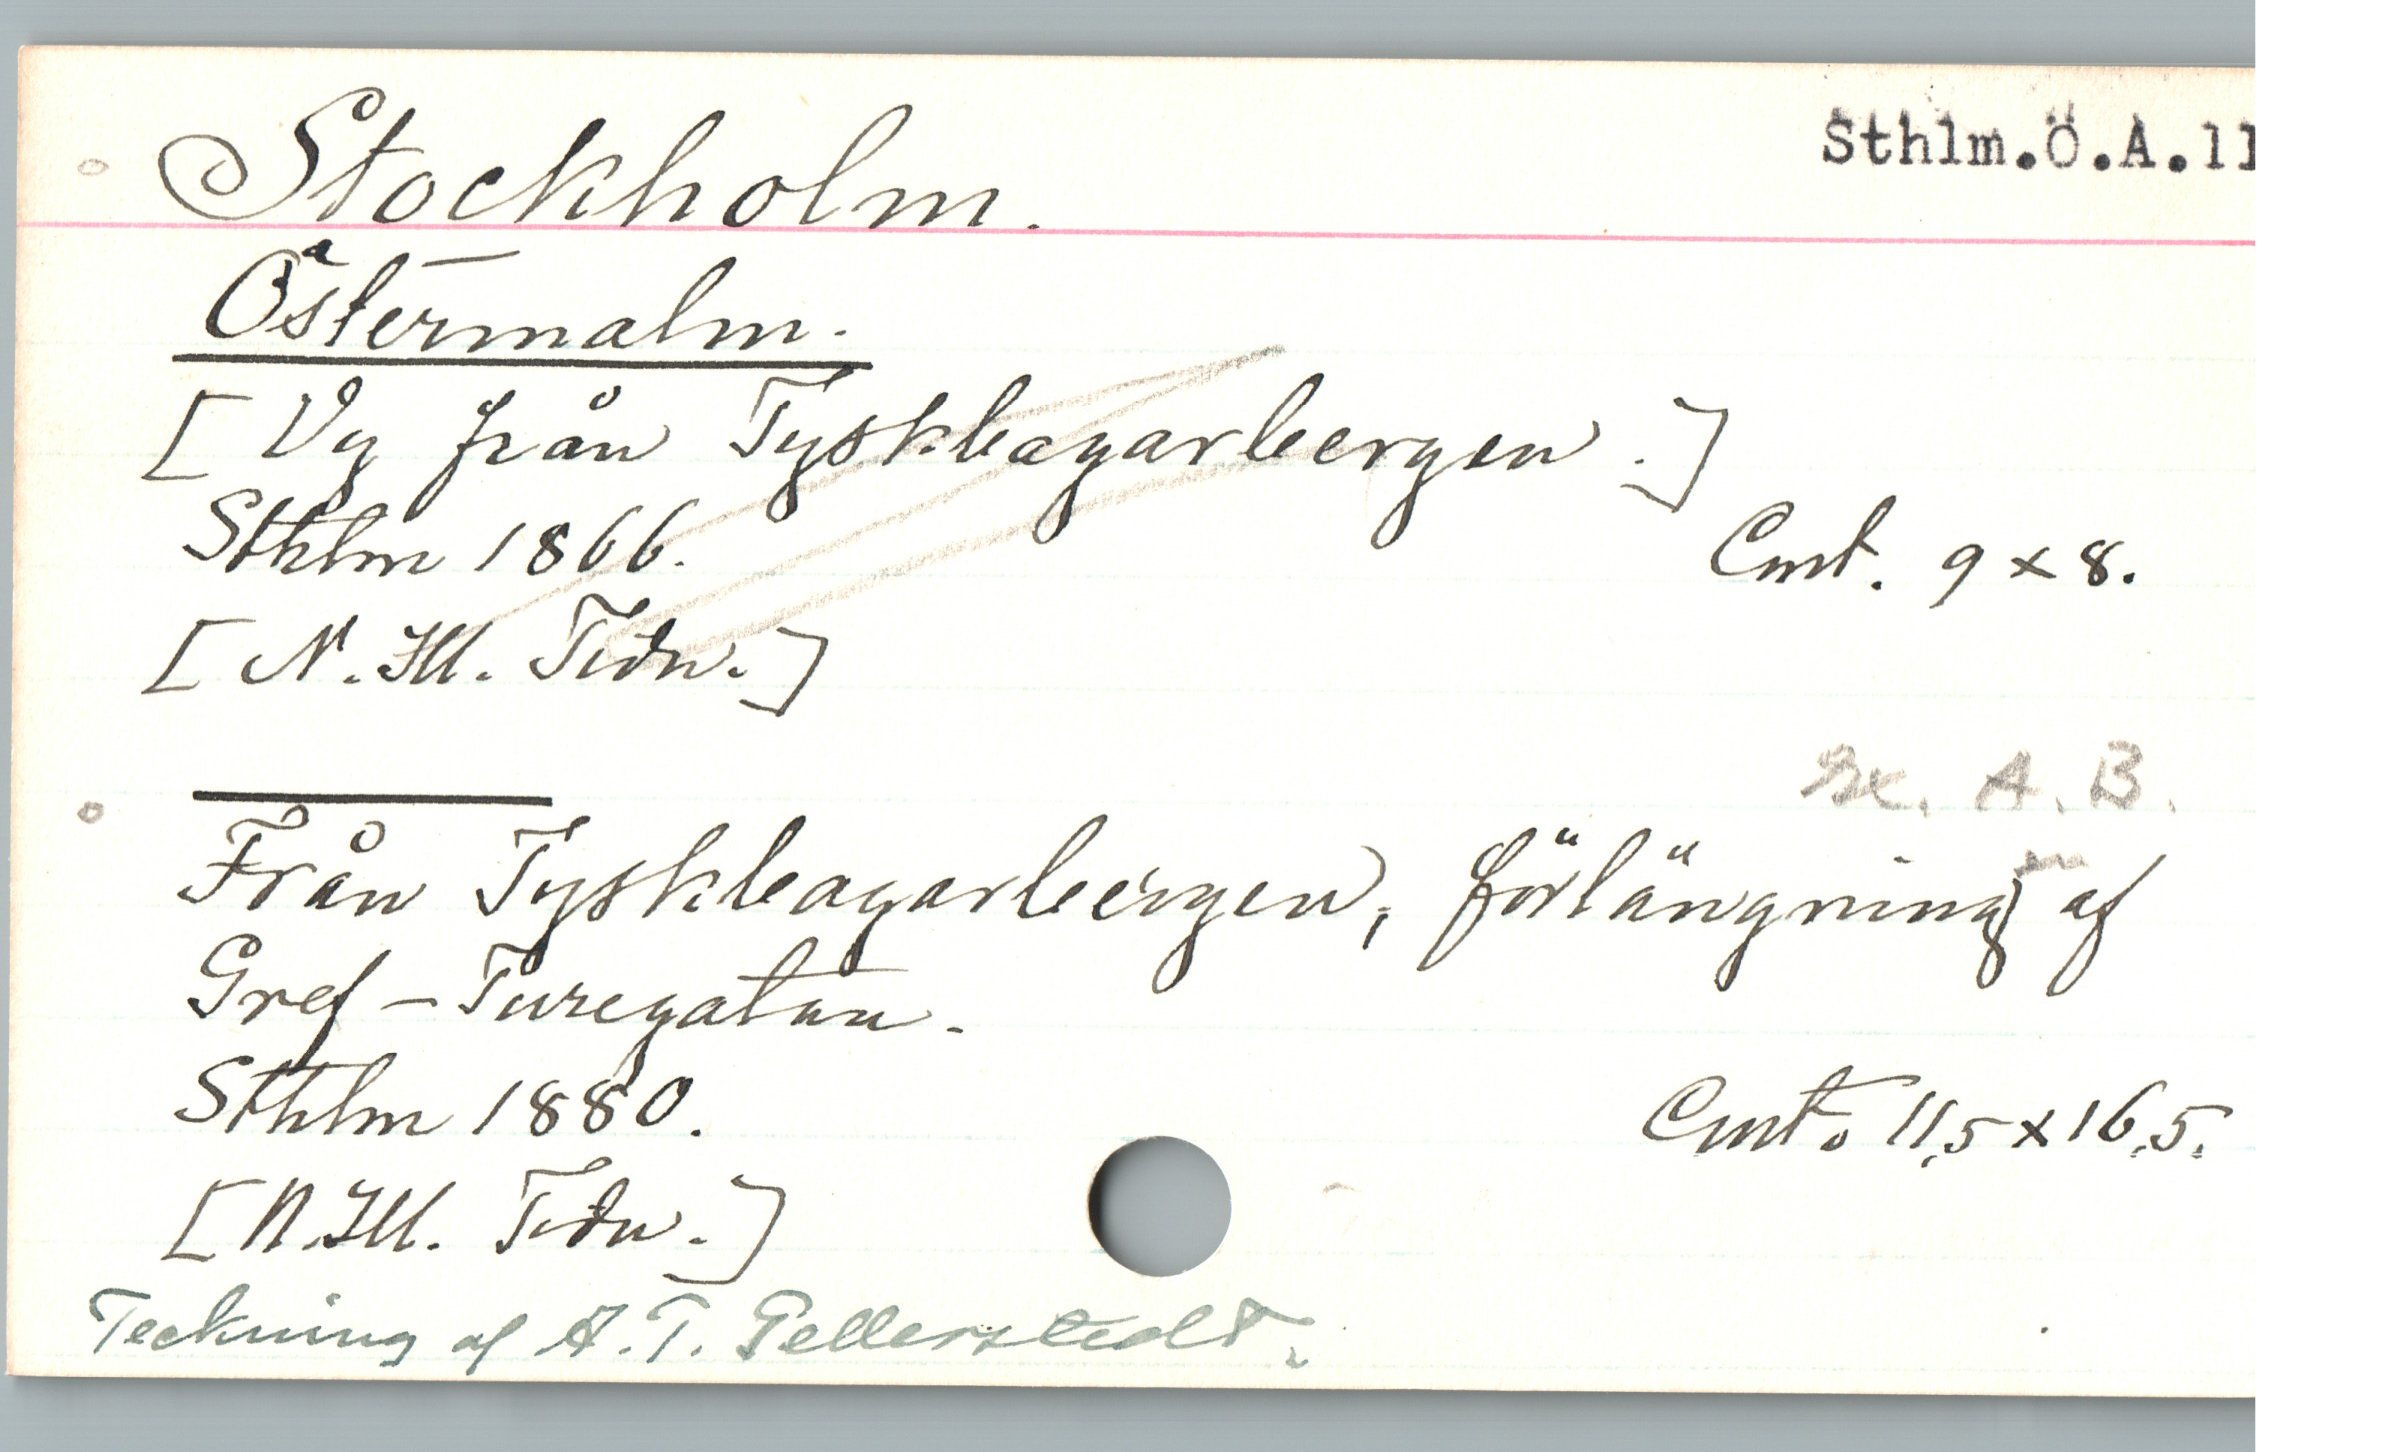 Stockholm.
Sthlm.Ö.A.11
Östermalm.
[Vy från Tyskbagarbergen.]
Sthlm 1866.
Cmt. 9 x 8.
[N. Ill. Tidn.]
Ex. A. B.
Från Tyskbagarbergen, förlängning af
Gref-Turegatan.
Sthlm 1880.
Cmt. 11,5 x 16,5.
[N. Ill. Tidn.]
Teckning af A. T. Gellerstedt.